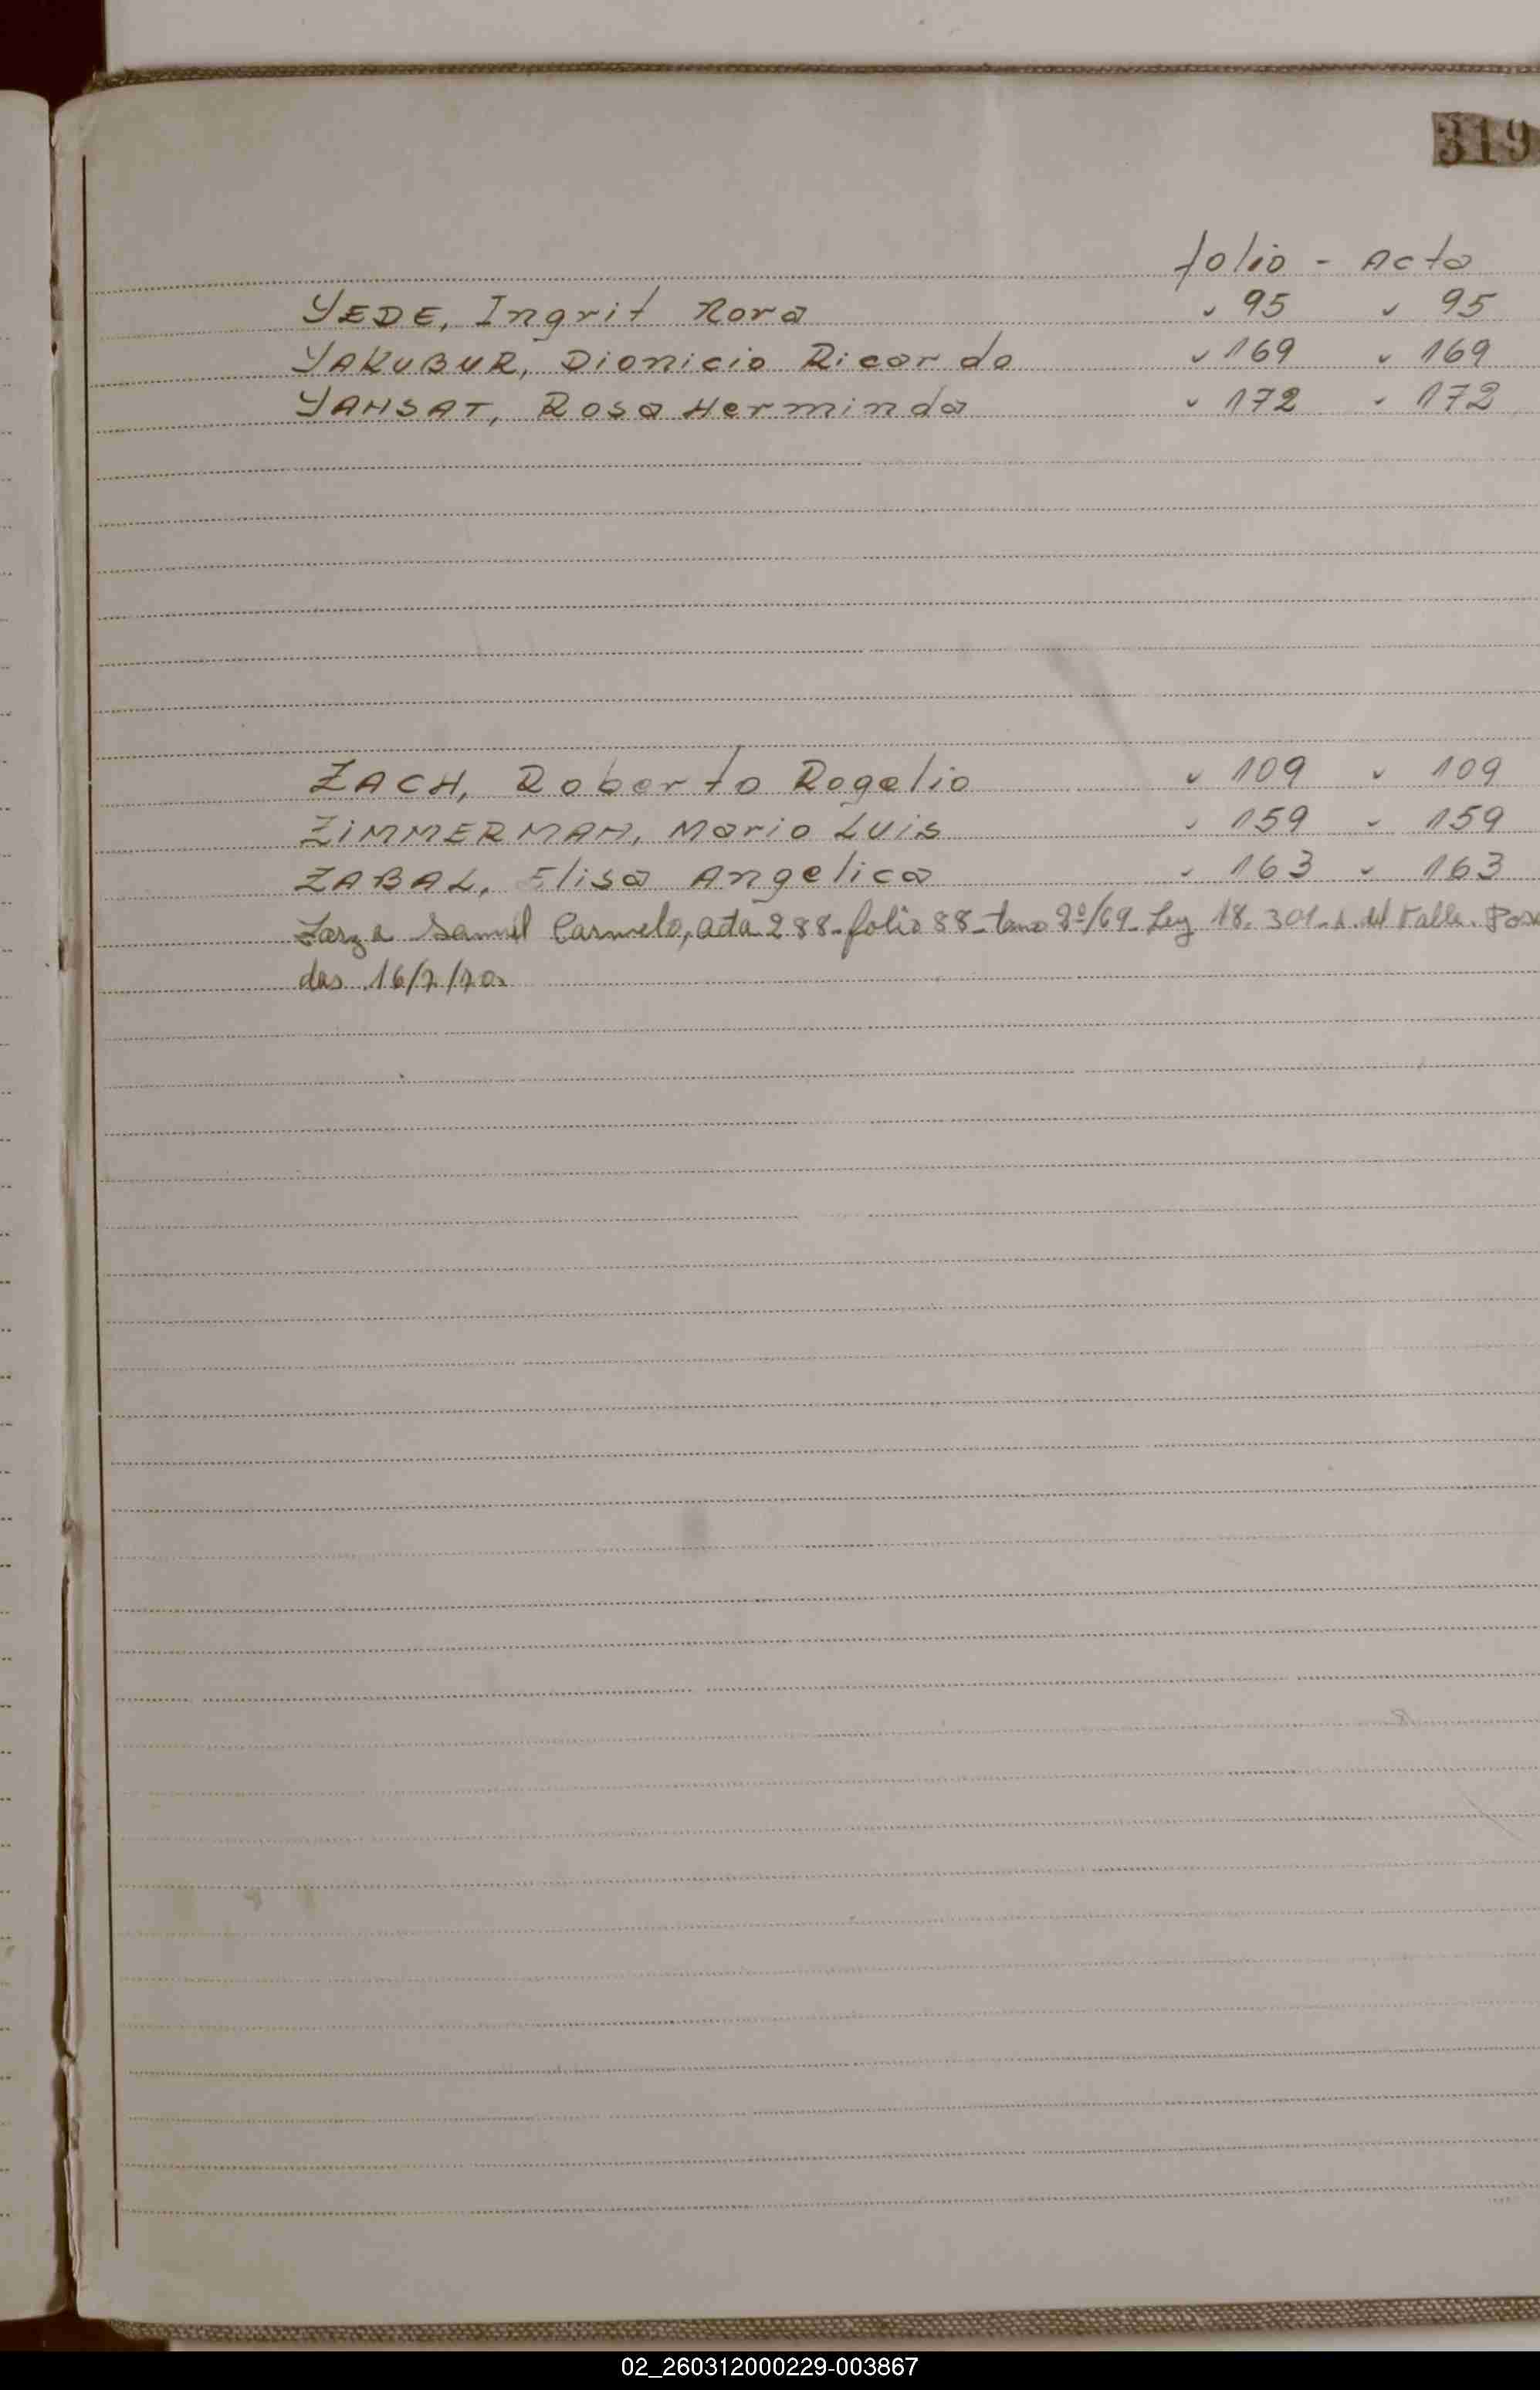 319
folio - Acta
YEDE, Ingrit Nora 95 95
YAKUBUR, Dionicio Ricardo 169 169
YAHSAT, Rosa Herminda 172 172
ZACH, Roberto Rogelio 109 109
ZIMMERMAN, Mario Luis 159 159
ZABAL, Elisa Angelica 163 163
Zarza Samuel Carmelo, acta 288 - folio 88 - tomo 2º/69 - Ley 18.301 - S. del Valle. Posa
das 16/7/70.
02_260312000229-003867